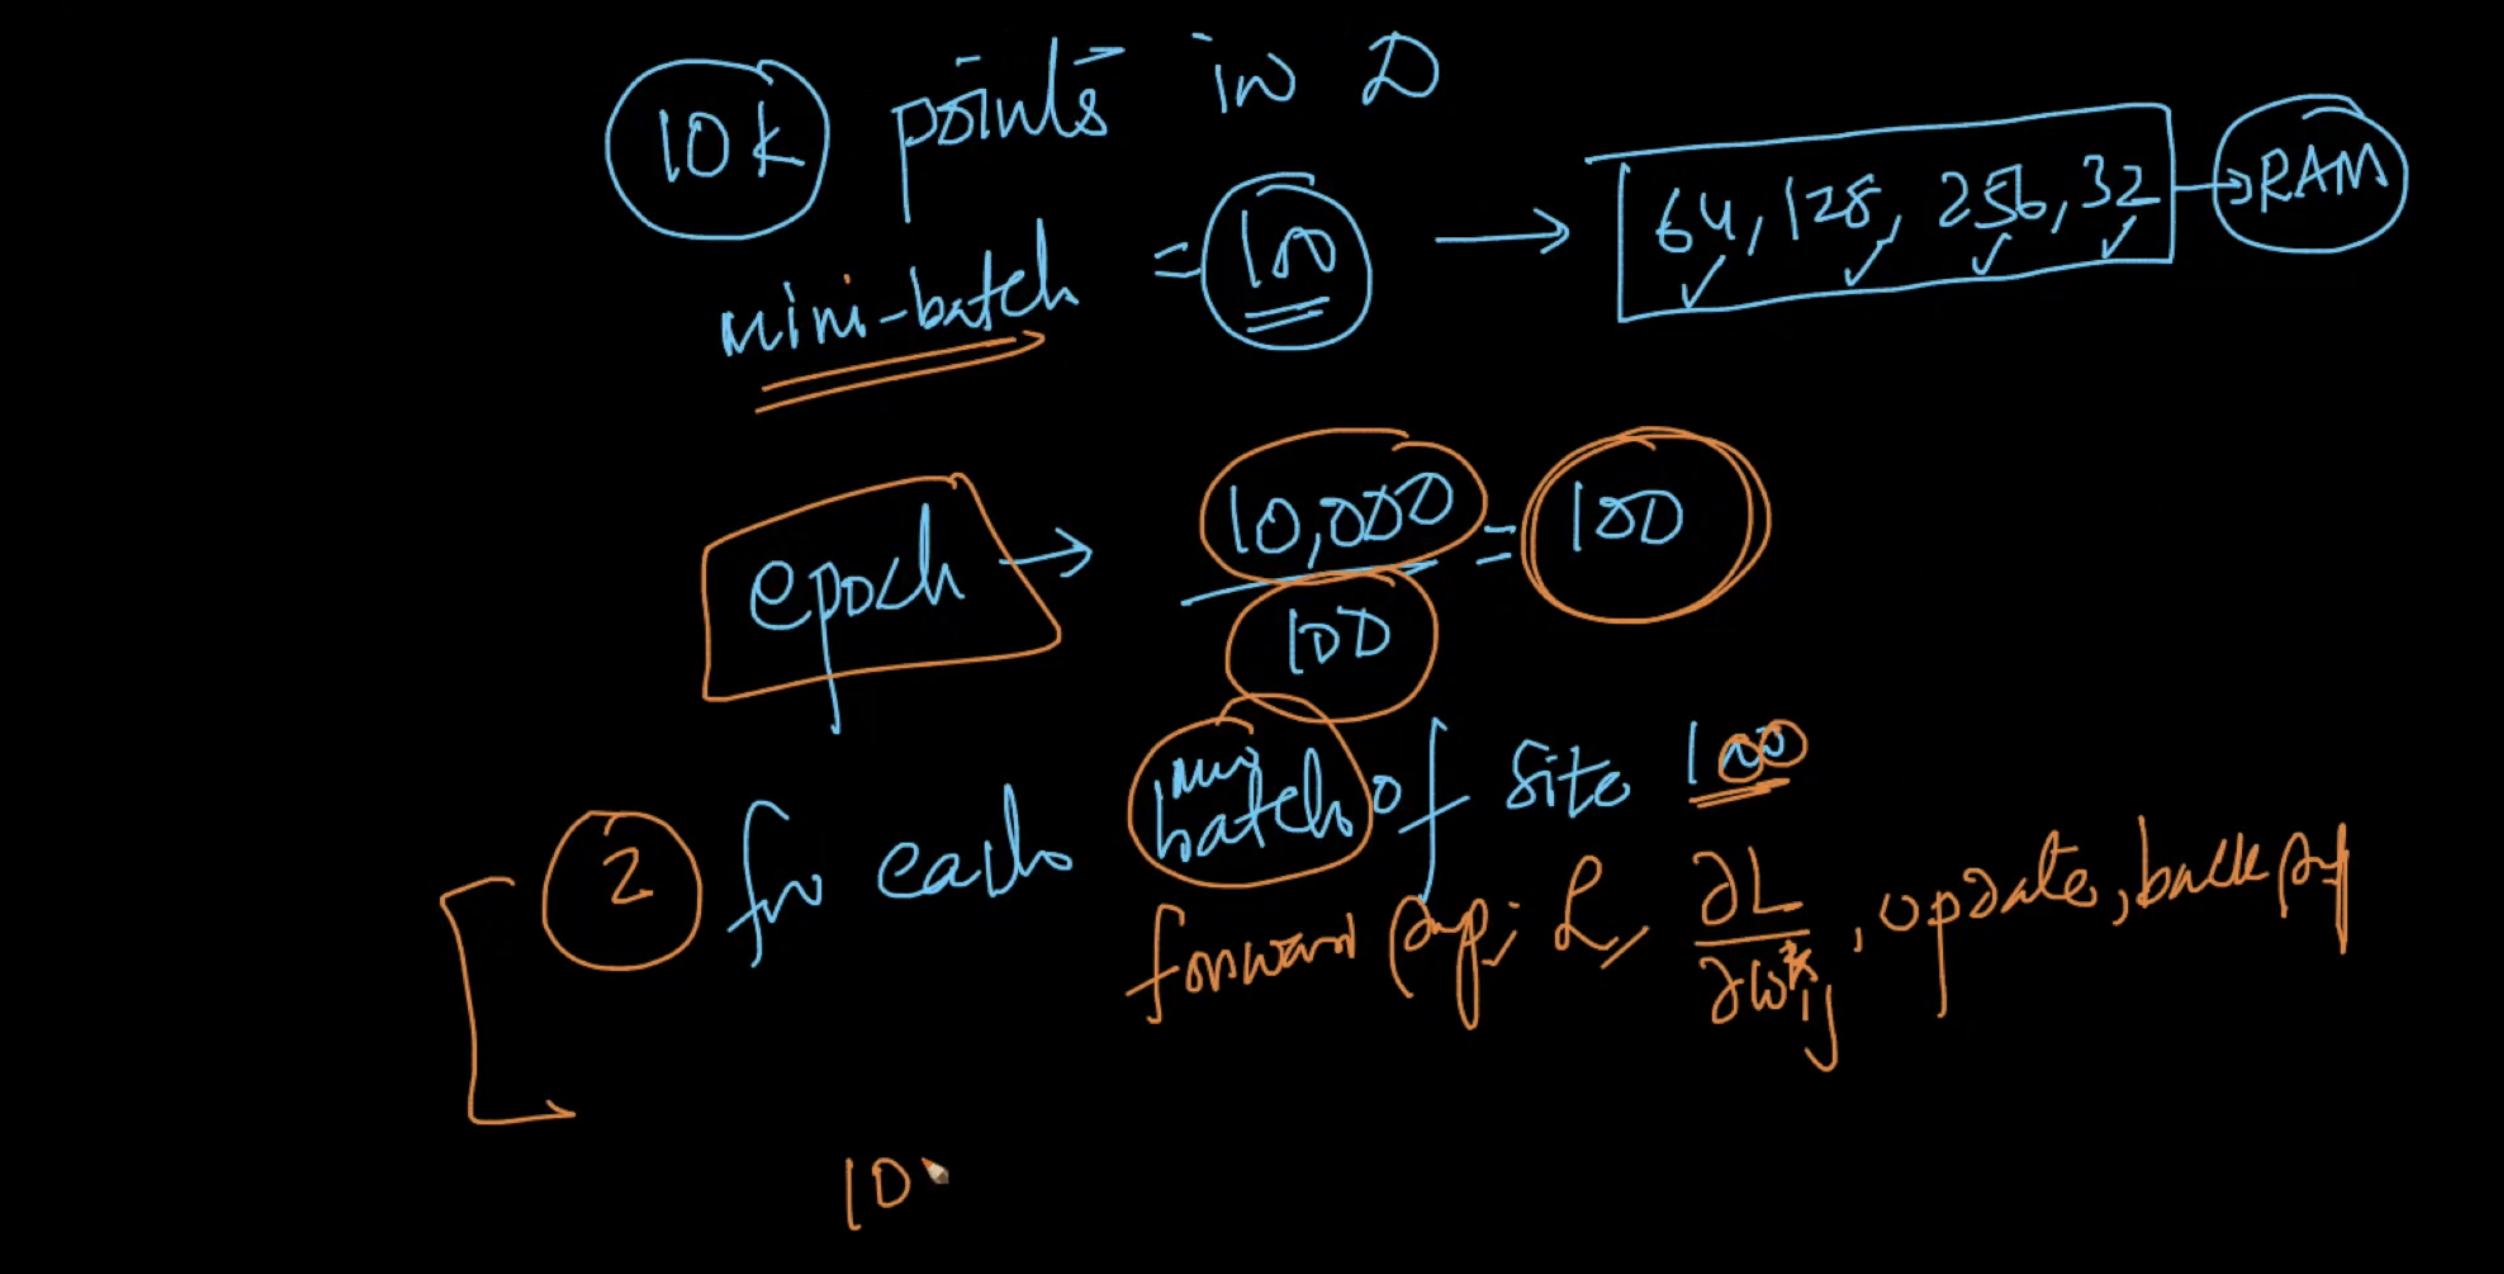 10k points in D
mini-batch = 100 → 64, 128, 256, 32 → RAM
epoch → 10,000 / 100 = 100
2 for each mini batch of size 100
forward prop; L, ∂L/∂w^k_ij, update, back prop
10